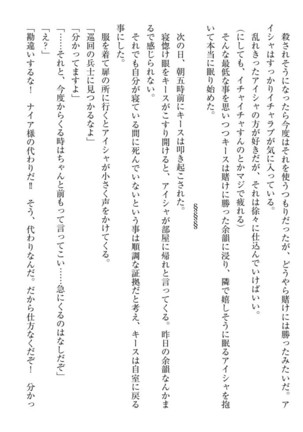 殺されそうになったら今度はそれを使うつもりだったが、どうやら賭けには勝ったみたいだ。ア
イシャはすっかりイチャラブが気に入っている。
乱れきったアイシャの方が好きだが、それは徐々に仕込んでいけばいい。
(にしても、イチャイチャすんのとかマジで疲れる)
そんな最低な事を思いつつキースは賭けに勝った余韻に浸り、隣で嬉しそうに眠るアイシャを抱
いて本当に眠り始めた。
§§§§§
次の日、朝五時前にキースは叩き起こされた。
寝惚け眼をキースがこすり開けると、アイシャが部屋に帰れと言ってくる。昨日の余韻なんかま
るで感じられない。
それでも自分が寝ている間に死んでいないという事は順調な証拠だと考え、キースは自室に戻る
事にした。
服を着て扉に向かうとアイシャが小さく声をかけてくる。
「巡回の兵士に見つかるなよ」
「分かってますよ」
「……それと、今度からくる時はちゃんと前もって言ってこい……急にくるのはなしだぞ」
「え？」
「勘違いするな！　ナイア様の代わりだ!!　そう、代わりなんだ。だから仕方なくだぞ！　分かっ